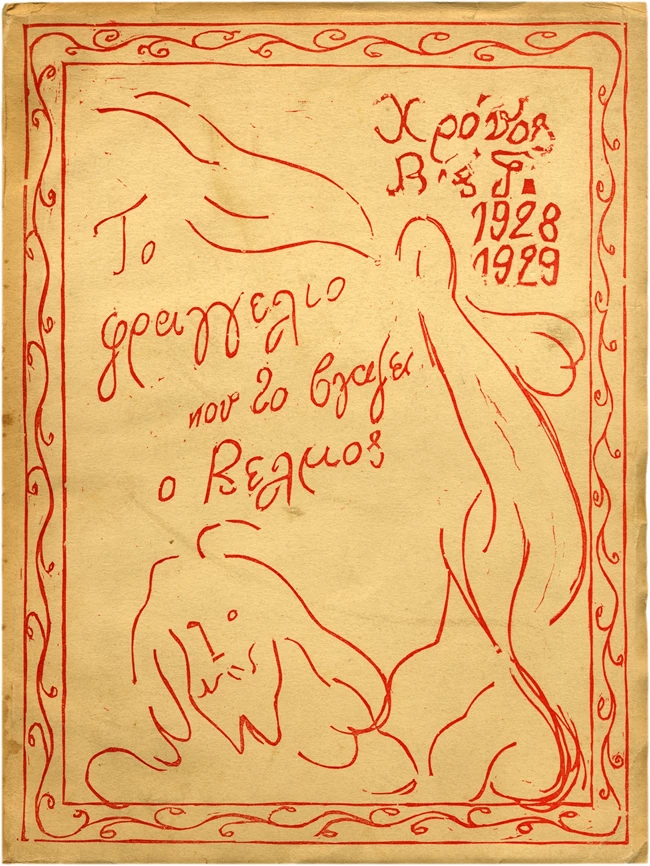 Χρόνος
Β' Γ.
1928
1929
Το
φραγγελιο
που το βγαζει
ο Βελμος